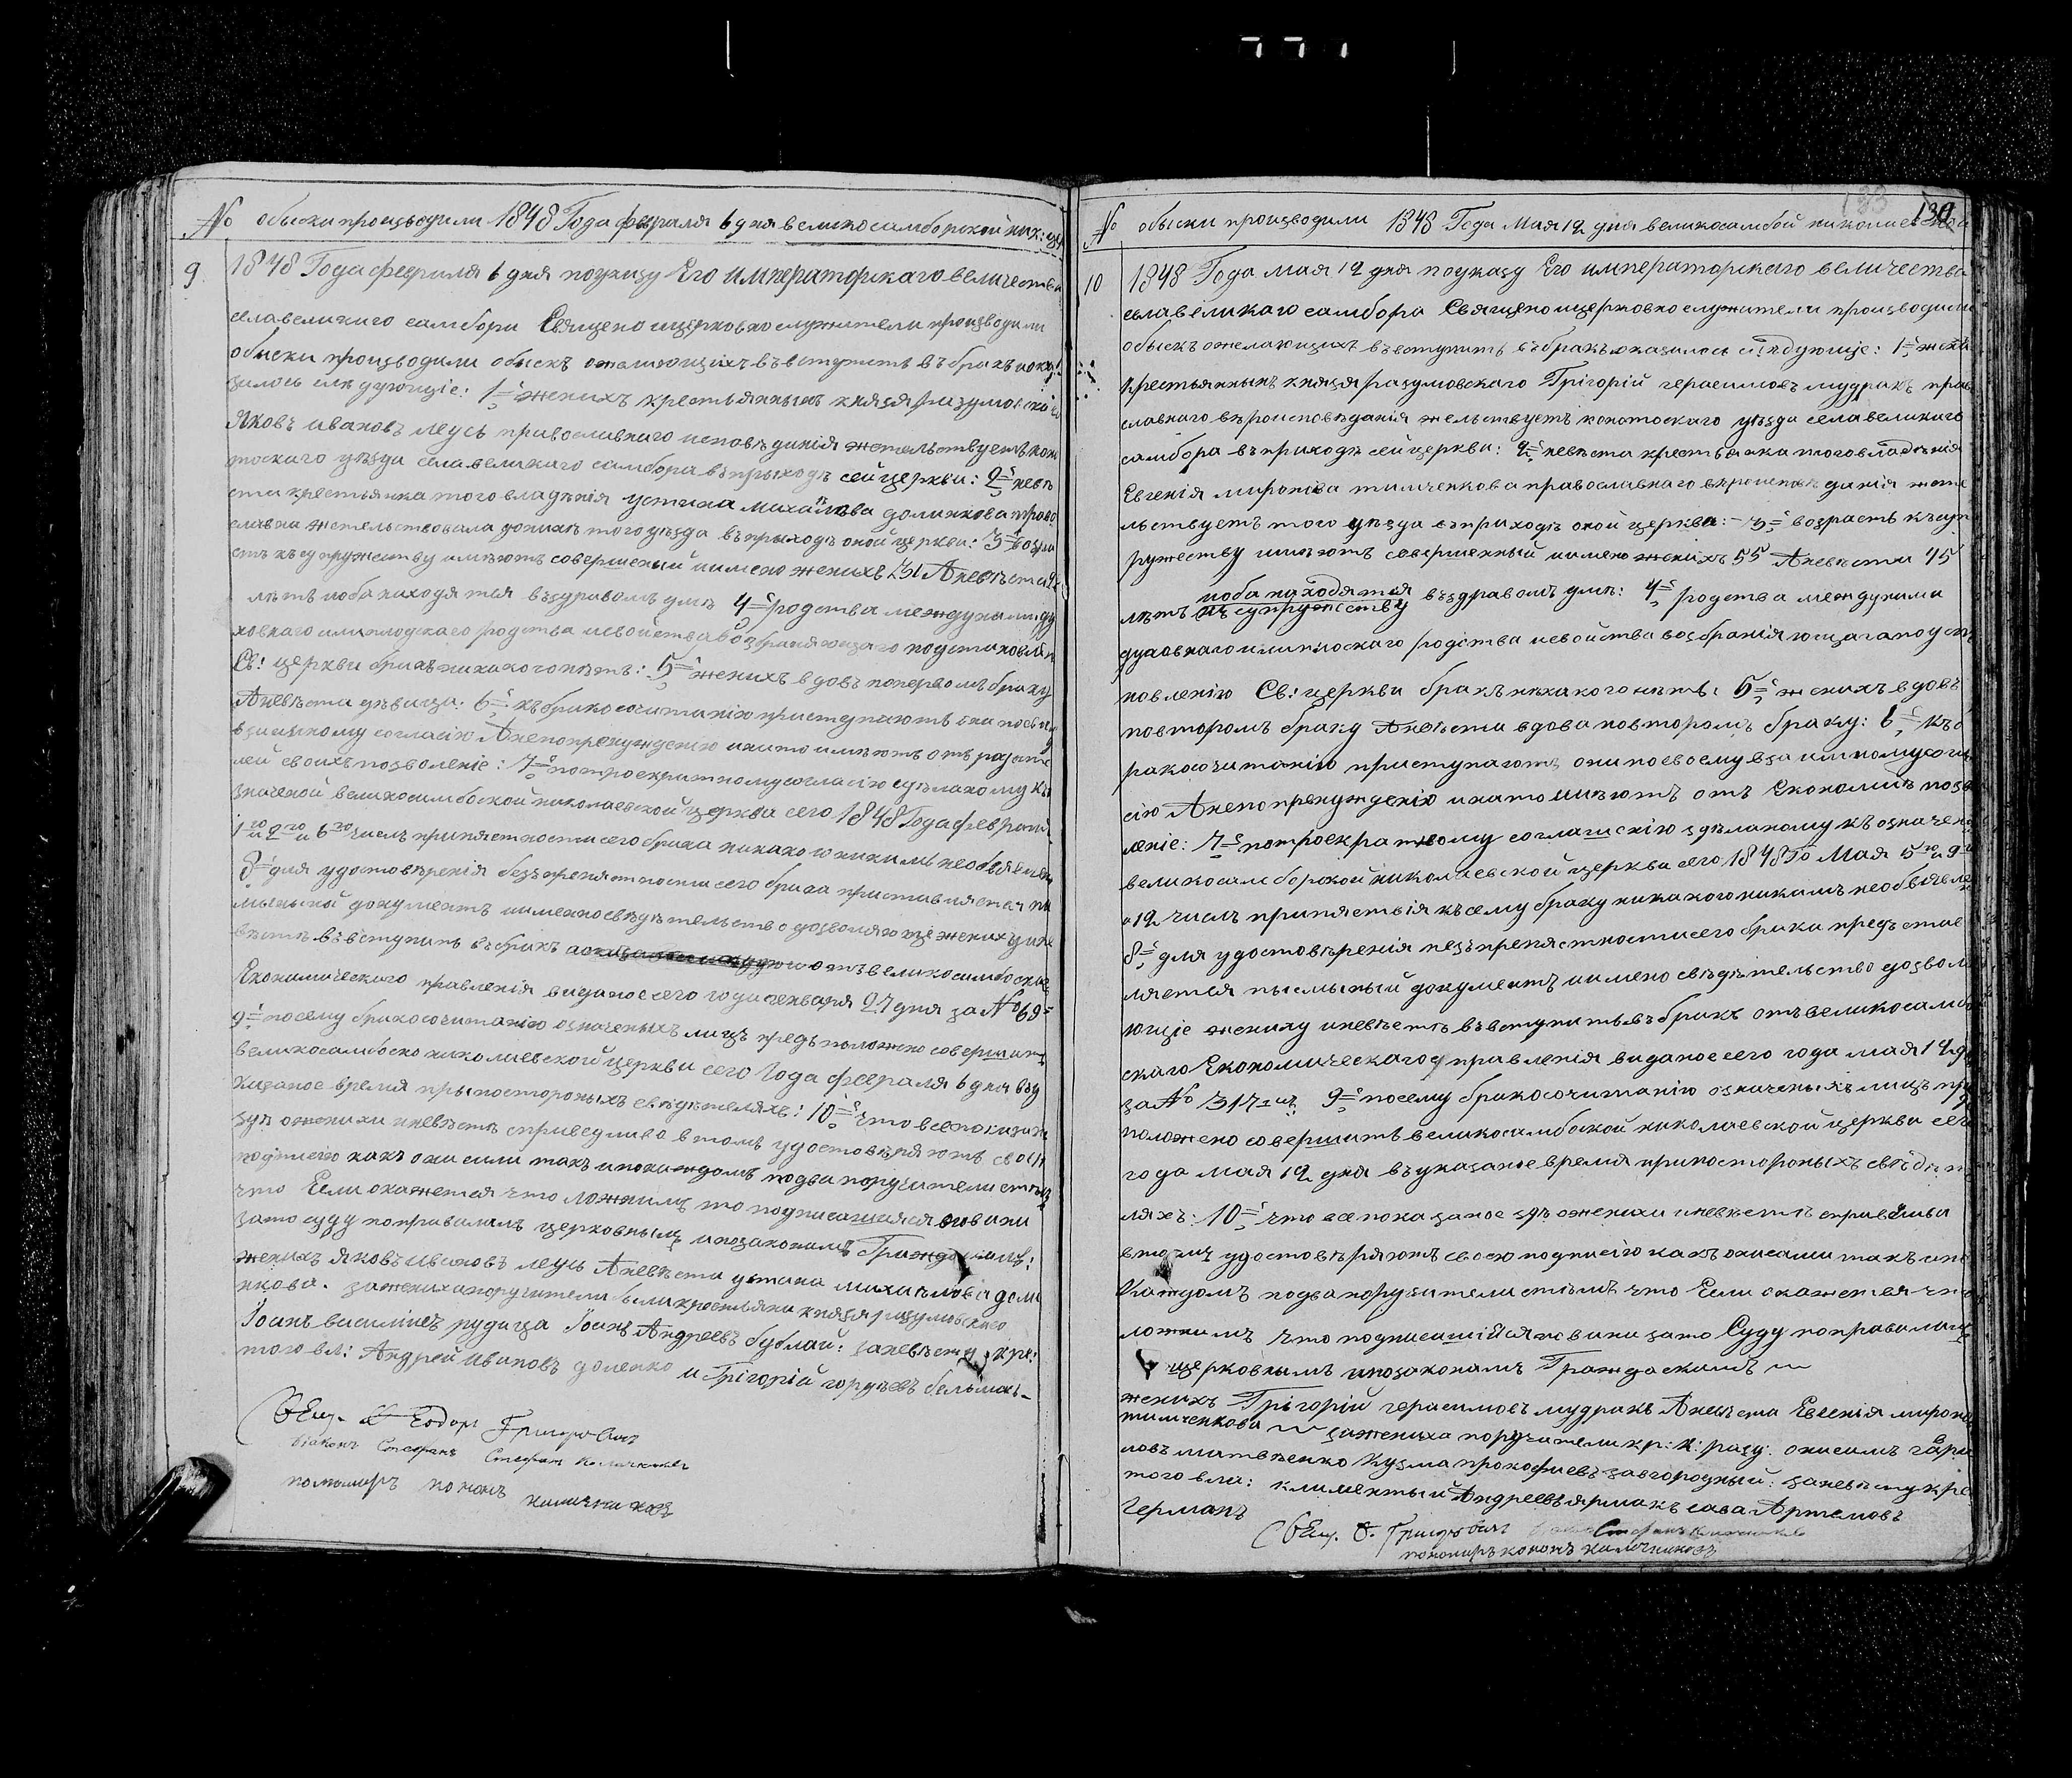 № обыски производили 1848 Года февраля 6 дня великосамборской ник: цер
9. 1848 Года февраля 6 дня поуказу Его императорскаго величества
села великого самбора Священо ицерковно служители производили
обыски производили обыскъ ожелающихъ въвступить въбракъ иока
зилось слѣдующіе: 1-е женихъ крестьянинъ князя разумовскаго
Яковъ ивановъ леусь православнаго исповѣданія жетельствуетъ коно
тоскаго уѣзда села великаго самбора въприходѣ сей церкви: 2-е невѣ
ста крестьянка того владѣнія устина михайлова долинкова право
славна жетельствовала доних того уѣзда въприходѣ оной церкви: 3-е возра
стъ къ супружеству имѣютъ совершеный имено женихъ 31 Аневѣста
лѣтъ иоба находятся въздравомъ умѣ 4-е родства междуними ду
ховнаго или плодскаго родства исвойства возбраняющаго подстановлен
Св: церкви бракъ никакого нѣтъ: 5-е женихъ вдовъ поперьвомъ браку
Аневѣста дѣвица. 6-е къ бракосочитанію приступаютъ они посвоему
взаимному согласію Анепопренужденію инато имѣютъ отъ родите
лей своихъ позволеніе: 7-е потроекратному согласію сдѣланому въ
значеной великосамбоской николаевской церква сего 1848 Года февраля
1-го и 2-го и 6-го числъ припяетности сего брака никакого никимъ необявлено
8-е для удостовѣренія безъ препятности сего брака приставляется пи
мьяный документъ именно свѣдѣтельство дозволяюще жениху и не
вѣстѣ въвступить въбракъ отъ великосамбоскаго
Екокомическаго правленія виданое сего года генваря 27 дня за № 69-е
9-е посему бракосочитанію означеныхъ лицъ предположено совершить
великосамбоско николаевской церкви сего Года февраля 6 дня въу
казаное время припостороныхъ свѣдѣтеляхъ: 10-е что все показано
здѣ ожениха иневѣстѣ справедливо втомъ удостовѣряютъ своей
подписію какъ они сами такъ ипокаждомъ подва поручители стѣмъ
что Если окажется что ложнимъ то подписавшіяся повини
зато суду поправиламъ церковнымъ ипозаконамъ Гражданскимъ:
женихъ яковъ ивановъ леусь Аневѣста устина михайлова доли
нкова. зажениха поручители были крестьяни князя разумовскаго
Іоанъ василіевъ рудица Іоанъ Андреевъ бублай: заневѣсту кре:
того вл: Андрей ивановъ доленко и Григорій гордѣевъ бельмасъ
Свящ. Ѳеодоръ Григоровичъ
діаконъ Стефанъ Стефан Калачников
пономаръ кононъ калачниковъ
130
№ обыски производили 1848 Года Мая 12 дня великосамбой николаевской
10 1848 Года мая 12 дня поуказу Его императорскаго величества
села великаго самбора Священоицерковно служители производили
обыскъ ожелающихъ въвступить въбракъ оказалось слѣдующіе: 1-е жени
крестьянинъ князя разумовскаго Григорій герасимовъ мудракъ прав
славнаго вѣроисповѣданія жельствуетъ конотоскаго уѣзда села великаго
самбора въприходѣ сей церкви: 2-е невѣста крестьянка того владѣнія
Евгенія миронова тимченкова православнаго вѣроисповѣданія жете
льствуетъ того уѣзда въприходѣ оной церква: 3-е возрастъ късуп
ружеству имѣютъ совершенный имено женихъ 55 Аневѣста 45
иоба находятся
лѣтъ въздравомъ умѣ: 4-е родства междуними
духовнаго или плоскаго родства исвойства возбраняющаго подста
новленію Св: церкви бракъ никакого нѣтъ: 5-е женихъ вдовъ
повторомъ браку Аневѣста вдова повторомъ браку: 6-е къ б
ракосочитанію приступаютъ они посвоему взаимному согла
сію Анепопренужденію инато имѣютъ отъ Екокоміи позво
леніе: 7-е потроекратному согласію здѣланому въ означеной
великосамборской николаевской церква сего 1848 Го Мая 5-го и 9-го
и 12 числъ припятствія къ сему браку никакого никимъ необявлено
8-е для удостовѣренія безъ препятности сего брака предъстав
ляется писмяный документъ имено свѣдѣтельство дозвол
ющіе жениху иневѣстѣ въвступить въбракъ отъ великосамбо
скаго Екокомическаго управленія виданое сего года мая 12 д
за № 317 9-е посему бракосочитанію означеныхъ лицъ пред
положено совершить великосамбоской николаевской церква сего
года мая 12 дня въуказаное время припостороныхъ свѣдѣте
ляхъ: 10-е что все показаное здѣ ожениха иневѣстѣ справедлива
втомъ удостовѣряютъ своею подписію какъ они сами такъ ипо
каждомъ подва поручители стѣмъ что Если окажется что
ложнимъ что подписавшійся повини зато Суду поправиламъ
церковнымъ ипозаконамъ Граждаскимъ
женихъ Григорій герасимовъ мудракъ Аневѣста Евгенія миронова
тимченкова зажениха поручители кр: к: разу: онисимъ
ловъ матвѣенко Кузма прокофиевъ завгородный: заневѣсту кре
того вла: климентый Андреевъ ярмакъ сава Артемовъ
Германъ
Свящ. Ѳ. Григоровичъ Стефанъ
пономаръ кононъ калачниковъ